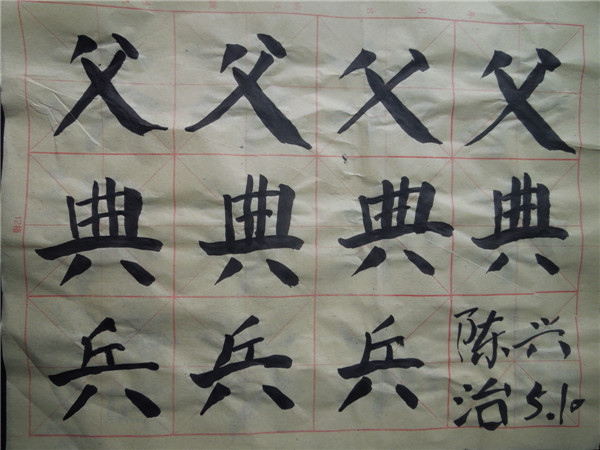 父父父父
典典典典
兵兵兵
陈兴
治5.10